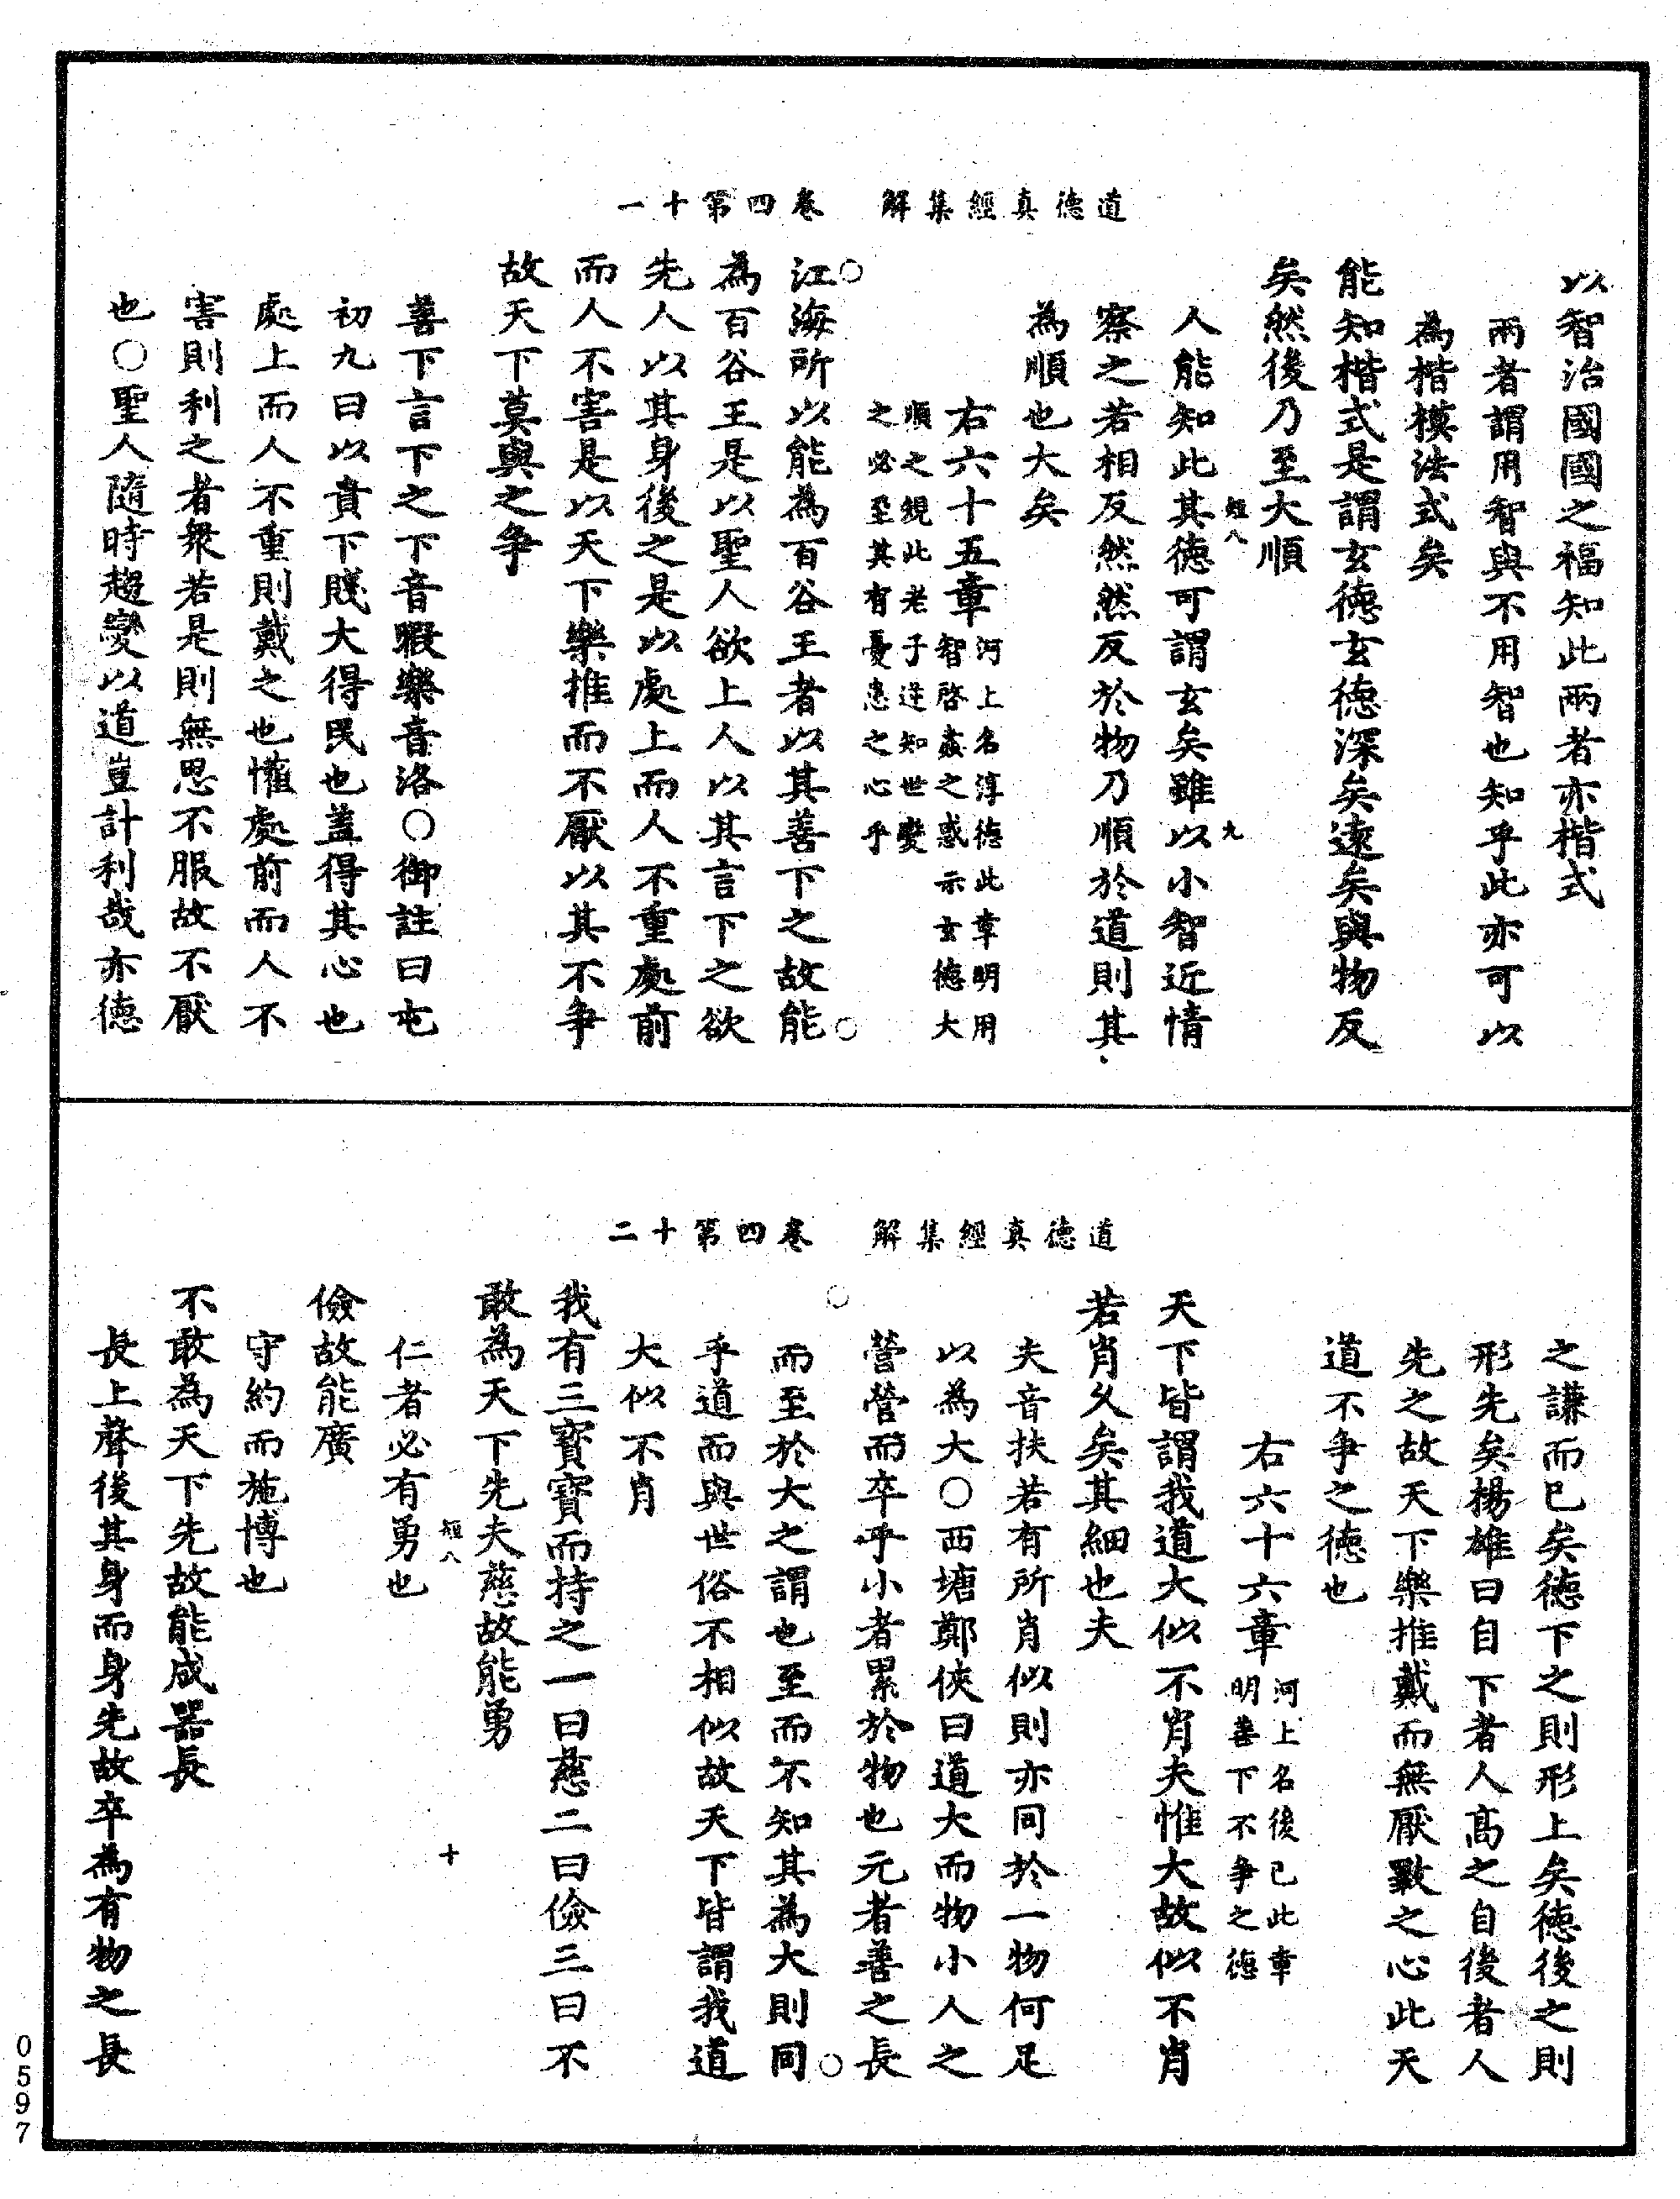 道德真經集解　卷四第十一
以智治國國之福知此兩者亦楷式
兩者謂用智與不用智也知乎此亦可以
為楷模法式矣
能知楷式是謂玄德玄德深矣遠矣與物反
矣然後乃至大順
短八　九
人能知此其德可謂玄矣雖以小智近情
察之若相反然然反於物乃順於道則其
為順也大矣
右六十五章
河上名淳德此章明用
智啓姦之惑示玄德大
順之鏡此老子逆知世變
之必至其有憂患之心乎
江海所以能為百谷王者以其善下之故能
為百谷王是以聖人欲上人以其言下之欲
先人以其身後之是以處上而人不重處前
而人不害是以天下樂推而不厭以其不爭
故天下莫與之爭
善下言下之下音暇樂音洛〇御註曰屯
初九曰以貴下賤大得民也蓋得其心也
處上而人不重則戴之也懽處前而人不
害則利之者衆若是則無思不服故不厭
也〇聖人隨時趨變以道豈計利哉亦德
道德真經集解　卷四第十二
之謙而已矣德下之則形上矣德後之則
形先矣楊雄曰自下者人高之自後者人
先之故天下樂推戴而無厭斁之心此天
道不爭之德也
右六十六章
河上名後已此章
明善下不爭之德
天下皆謂我道大似不肖夫惟大故似不肖
若肖久矣其細也夫
夫音扶若有所肖似則亦同於一物何足
以為大〇西塘鄭俠曰道大而物小人之
營營而卒乎小者累於物也元者善之長
而至於大之謂也至而不知其為大則同
乎道而與世俗不相似故天下皆謂我道
大似不肖
我有三寶寶而持之一曰慈二曰儉三曰不
敢為天下先夫慈故能勇
短八　十
仁者必有勇也
儉故能廣
守約而施博也
不敢為天下先故能成器長
長上聲後其身而身先故卒為有物之長
0597